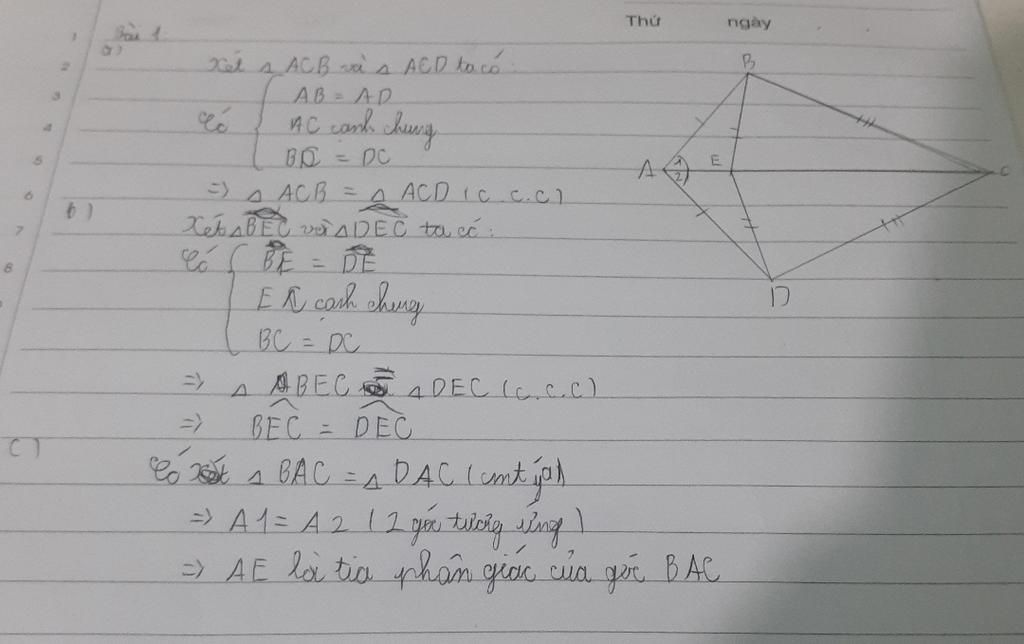 Thứ ngày
1
Bài 1
a)
2
Xét △ ACB và △ ACD ta có:
3
AB = AD
Có
4
AC cạnh chung
5
BC = DC
6
=> △ ACB = △ ACD (c.c.c)
b)
7
Xét △BEC và △DEC ta có:
8
Có
BE = DE
EC cạnh chung
BC = DC
=> △ BEC = △ DEC (c.c.c)
=> BEC = DEC
c)
Có △ BAC = △ DAC (cmt ýa)
=> A1 = A2 (2 góc tương ứng)
=> AE là tia phân giác của góc BAC
B
A
1
2
E
C
D